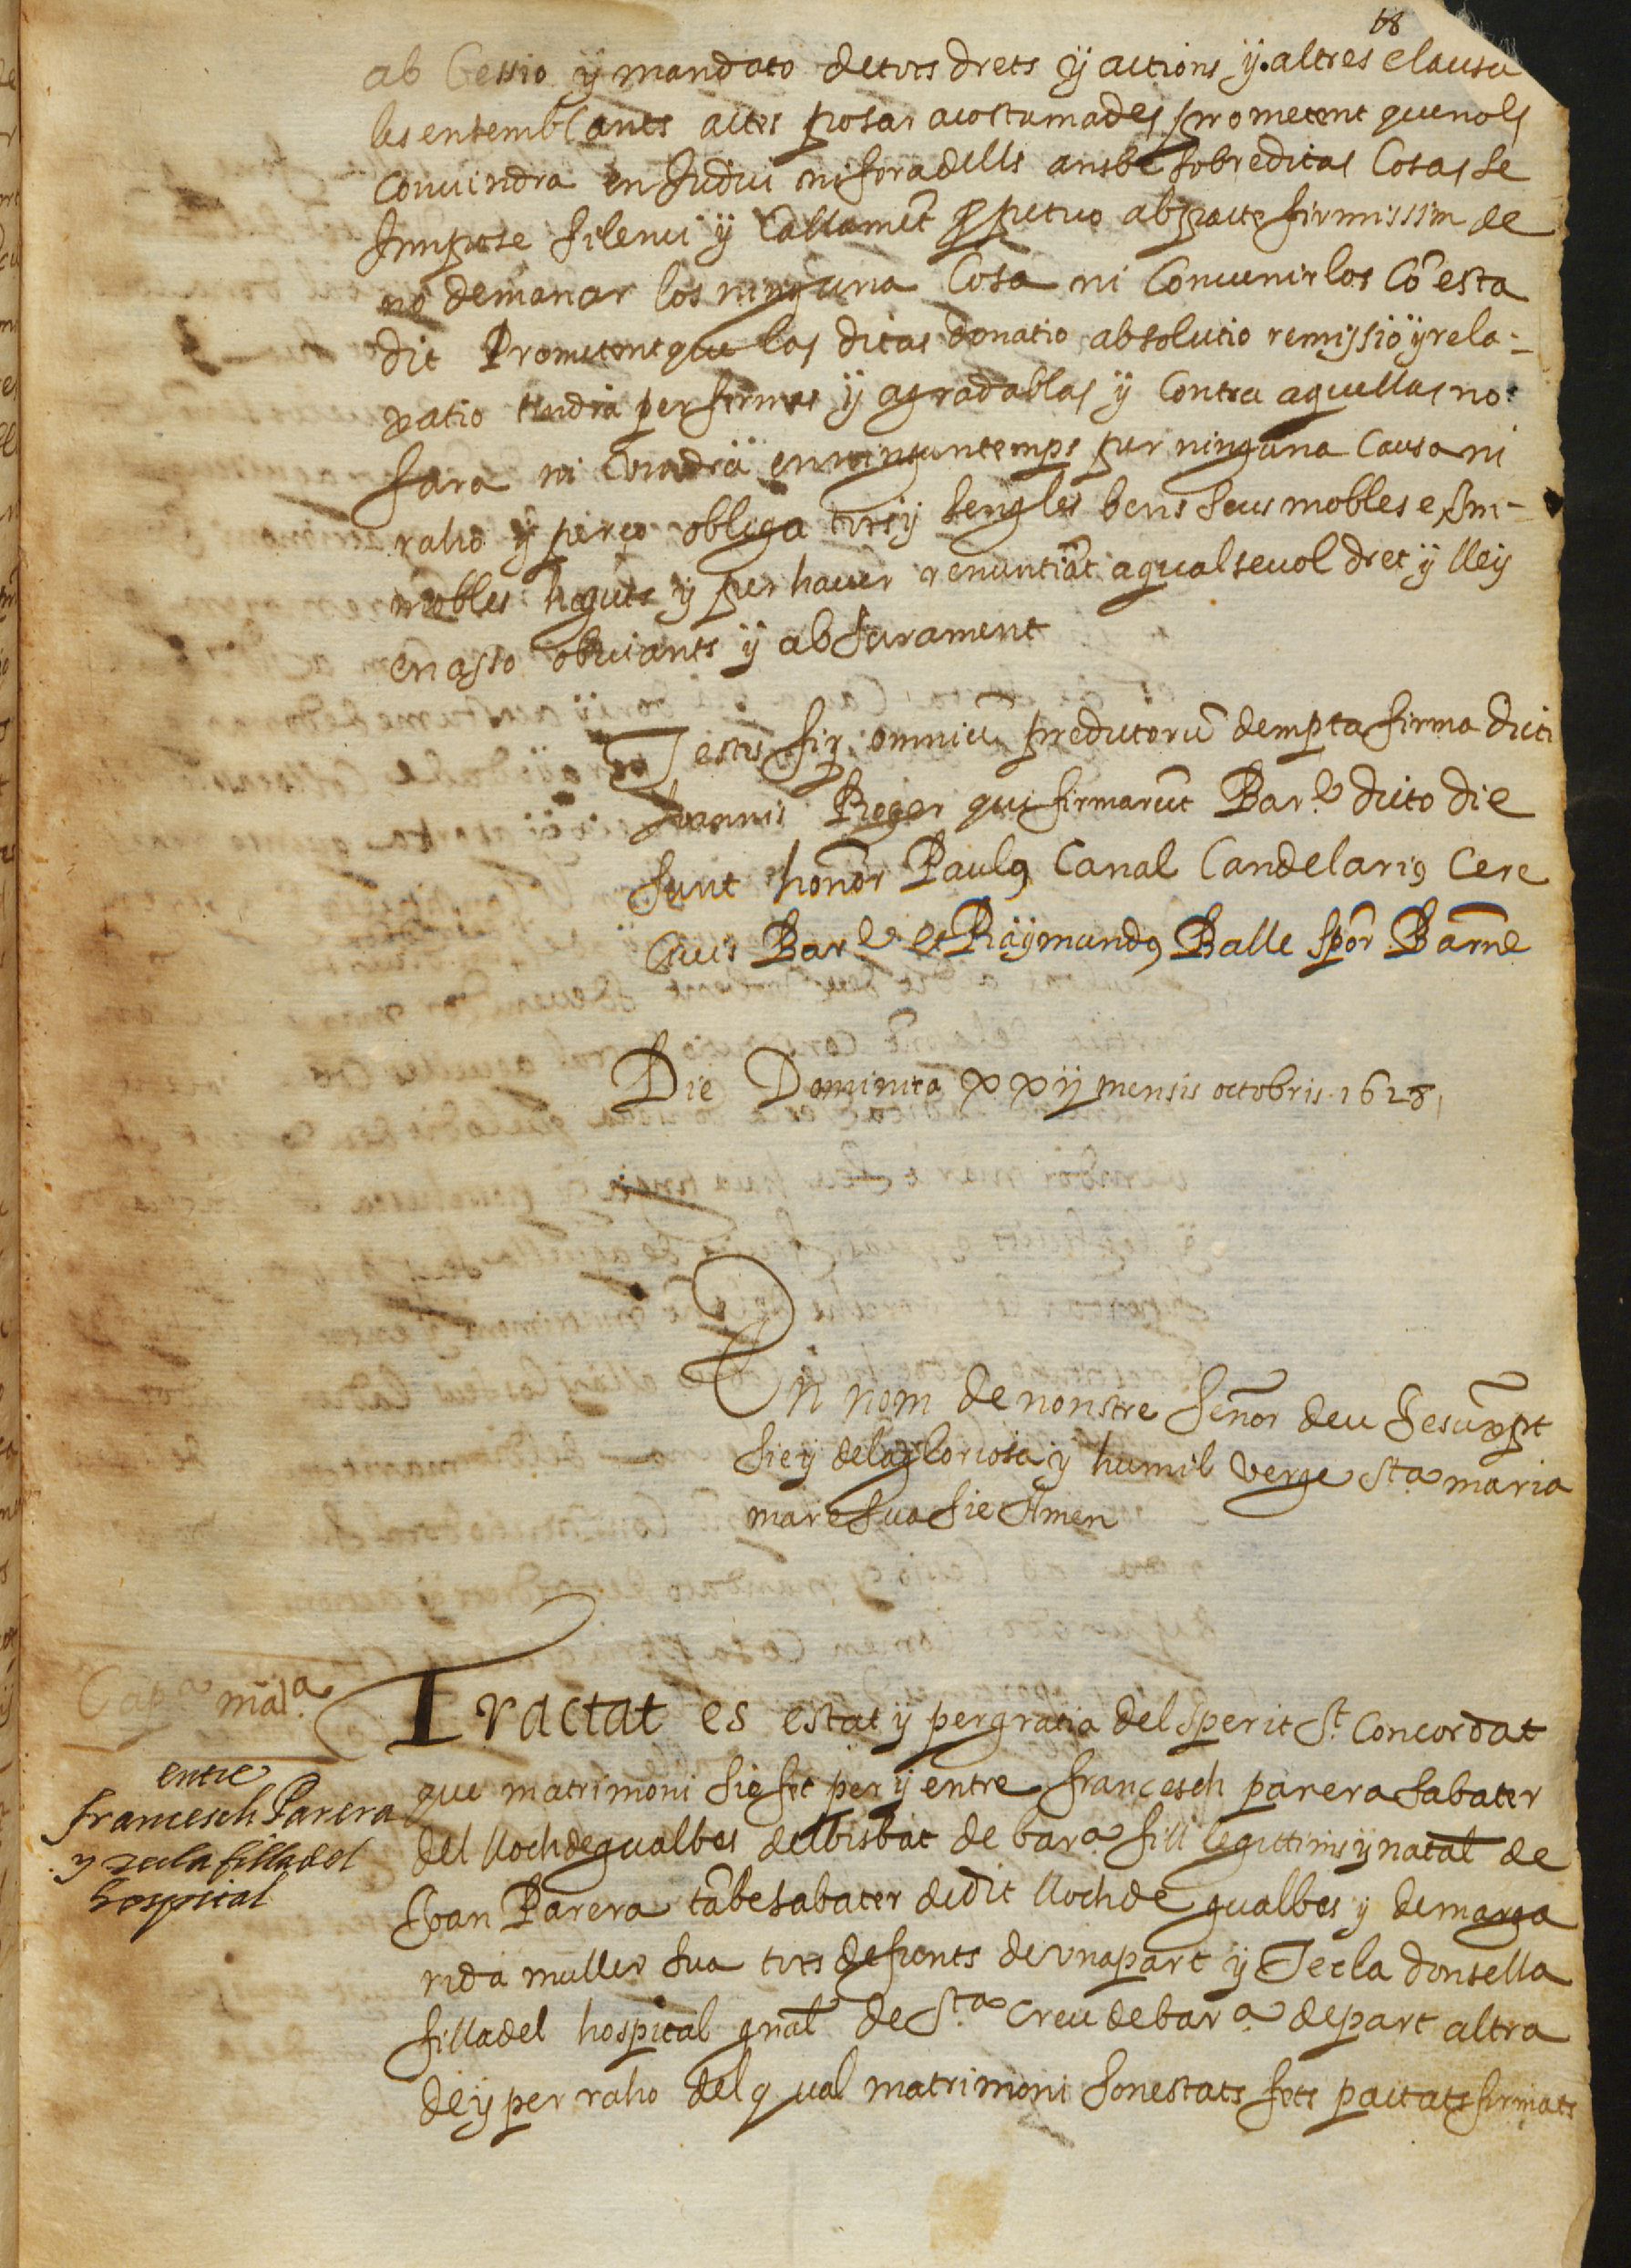 68
ab Cessio ÿ mandato de tots drets ÿ actions ÿ altres clausu
les en semblants actes posar acostumades prometent que nols
convindra en Judici ni fora dells ans be sobreditas Cosas se
Impose silenci ÿ Callamēt ꝑpetuo ab pacte firmissim de
no demanar los ninguna Cosa ni Convenirlos Cō esta
dit Prometent que las ditas donatio absolutio remissio ÿ rela-
xatio tindra per fermes ÿ agradablas ÿ Contra aquellas no
fara ni vindra en ningun temps per ninguna Causa ni
raho ÿ perço obliga tots ÿ sengles bens seus mobles e Im-
mobles haguts ÿ per haver renuntiāt a qualsevol dret ÿ lleÿ
en asso obviants ÿ ab Jurament
Testes fir omniū predictorū dempta firma dicti
Joannis Roger qui firmarūt Bar.e dicto die
sunt honōr Paulꝰ Canal Candelariꝰ Cere
Civis Bar.e et Raÿmundꝰ Balle Spōr Bārne
Die Dominica xxij mensis octobris 1628
En nom de nonstre Señor deu Jesūxp̄t
sie ÿ dela gloriosa ÿ humil verge Sta maria
mare sua sie Amen
Cap.a māl.a
entre
francesch Parera
y tecla filla del
hospital
Tractat es estat ÿ per gratia del Sperit St. Concordat
que matrimoni sie fet per ÿ entre francesch parera sabater
del lloch de gualbes del bisbat de bar.a fill legittim ÿ natāl de
Joan Parera tābe sabater de dit lloch de gualbes ÿ de marga
rida muller sua tots defuncts de vna part ÿ Tecla donsella
filla del hospital gñal de Sta Creu de bar.a de part altra
de ÿ per raho del qual matrimoni son estats fets pactats firmats